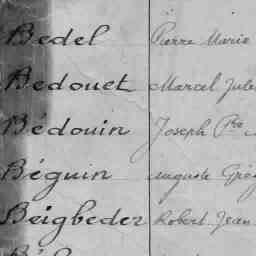 Bedel Pierre Marie
Bedouet Marcel Jules
Bédouin Joseph Pre
Béguin Auguste
Beigbeder Robert Jean